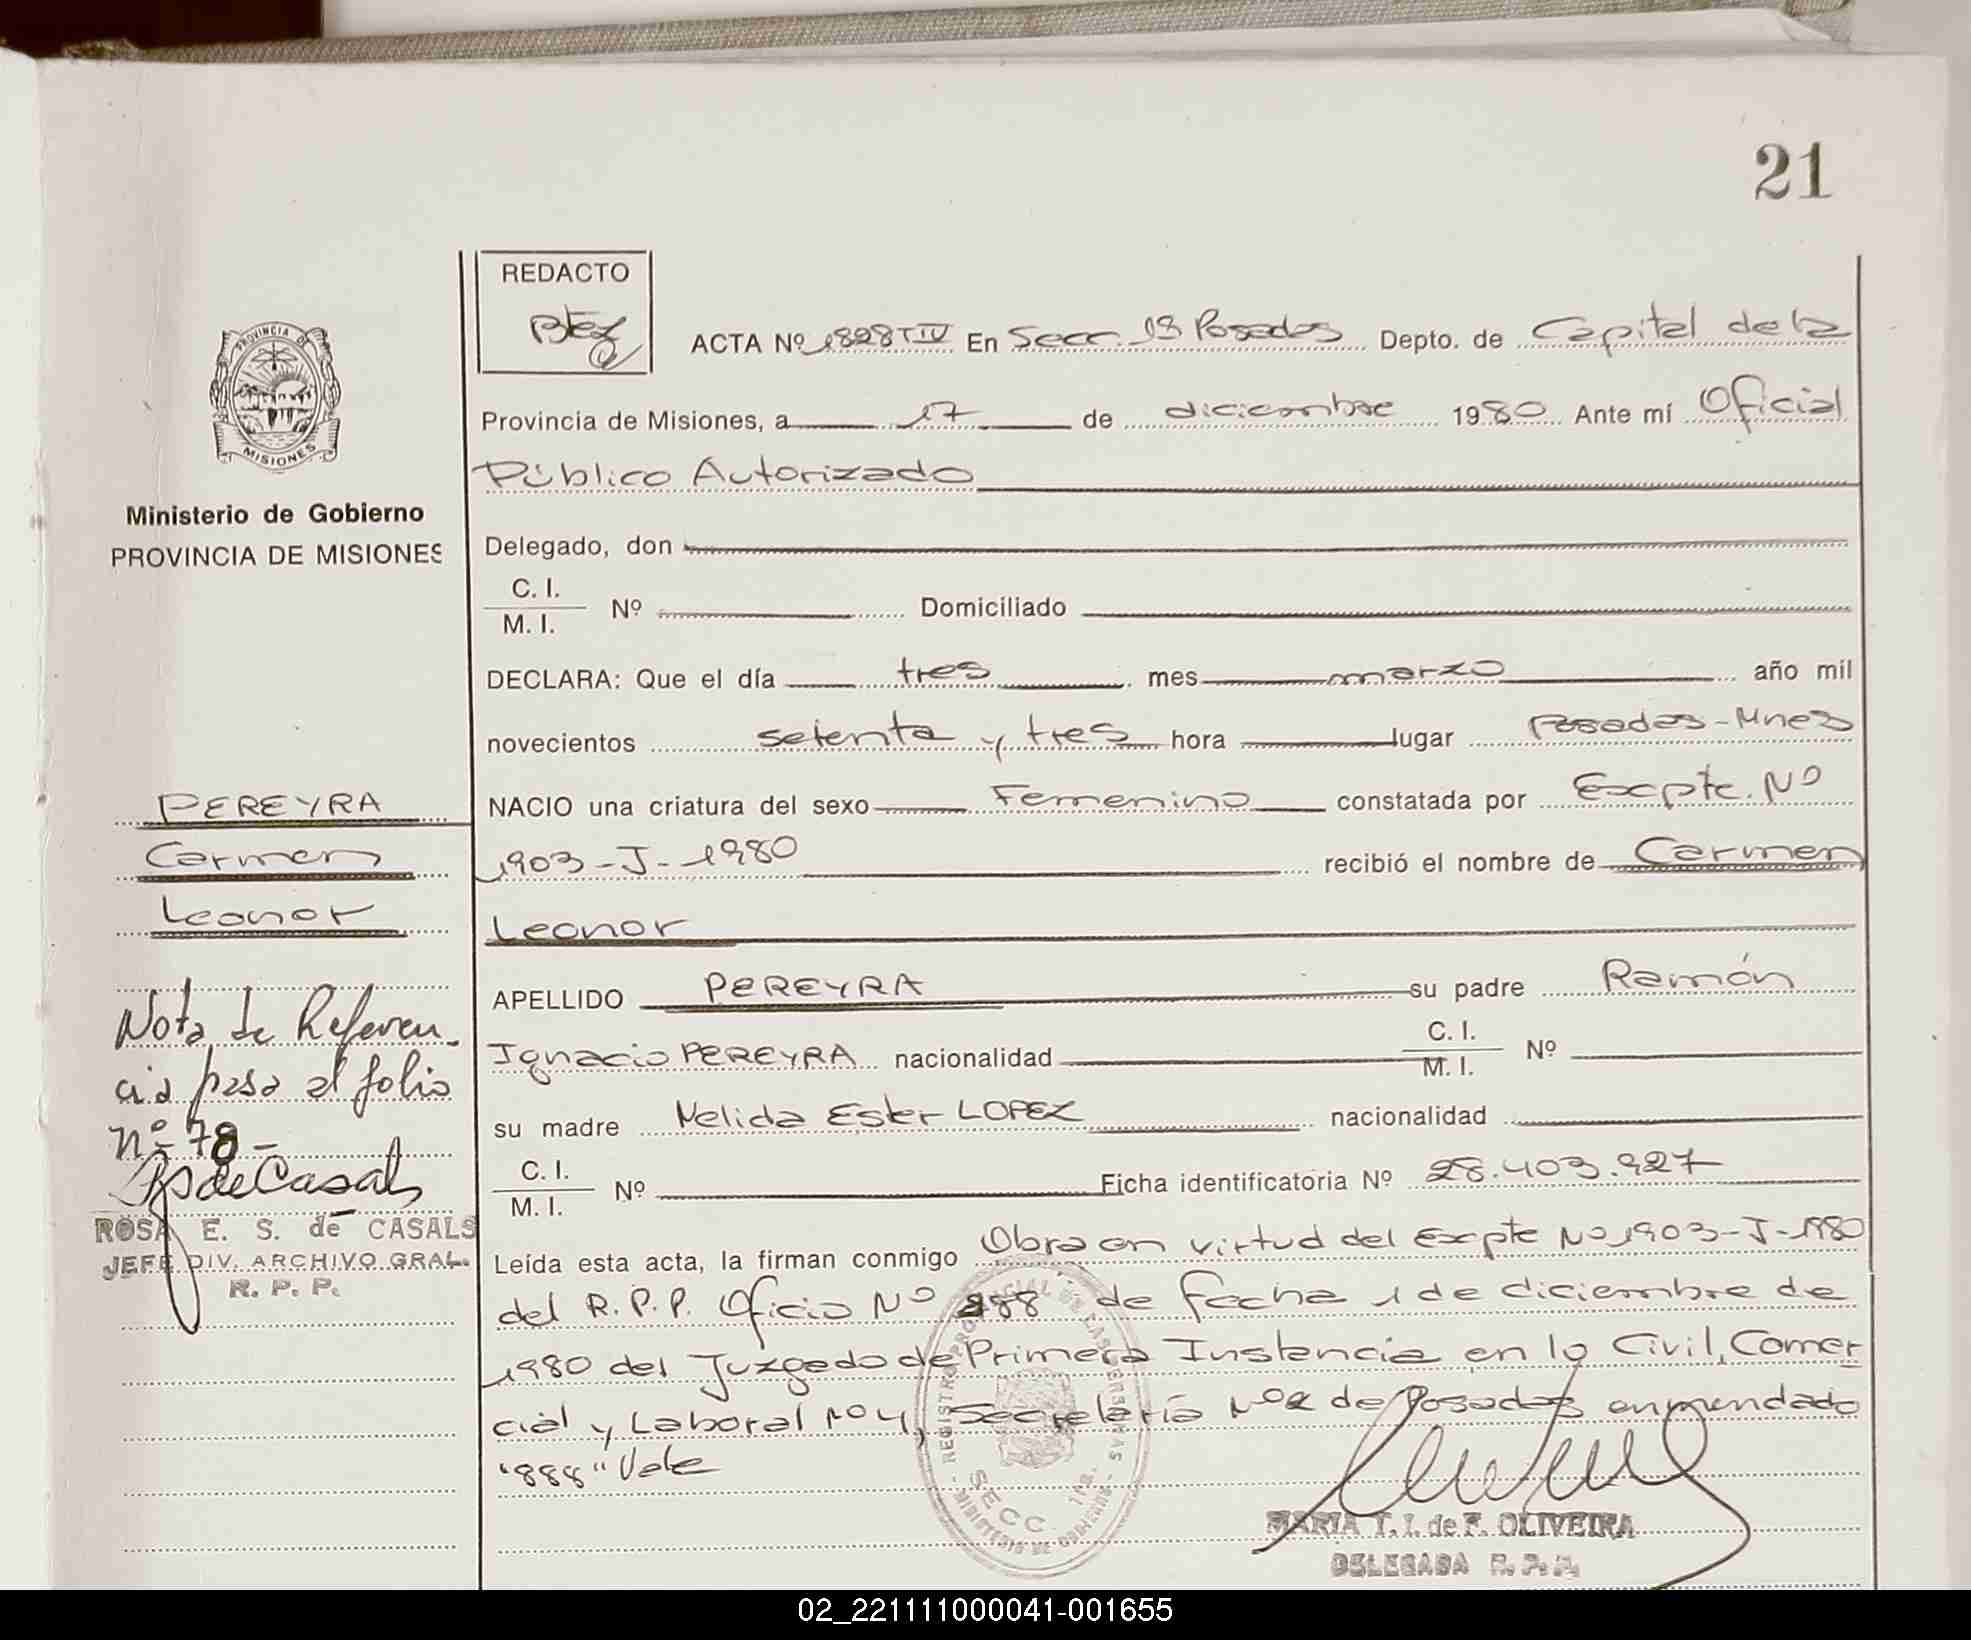 21
REDACTO
ACTA Nº 1828 T IV En Secc. 1ª Posadas Depto. de Capital de la
PROVINCIA DE
MISIONES
Provincia de Misiones, a 17 de diciembre 1980 Ante mí Oficial
Público Autorizado
Ministerio de Gobierno
PROVINCIA DE MISIONES
Delegado, don
C. I.
M. I.
Nº Domiciliado
DECLARA: Que el día tres mes marzo año mil
novecientos setenta y tres hora lugar Posadas-Mnes
PEREYRA
Carmen
Leonor
NACIO una criatura del sexo Femenino constatada por Excpte. Nº
1903-J-1980 recibió el nombre de Carmen
Leonor
APELLIDO PEREYRA su padre Ramón
Ignacio PEREYRA nacionalidad C. I.
M. I. Nº
su madre Nelida Ester LOPEZ nacionalidad
C. I.
M. I. Nº Ficha identificatoria Nº 28.403.927
Nota de Referen-
cia pasa al folio
nº 78-
RSdeCasals
ROSA E. S. de CASALS
JEFE DIV. ARCHIVO GRAL.
R. P. P.
Leída esta acta, la firman conmigo Obra en virtud del Excpte Nº 1903-J-1980
del R.P.P. Oficio Nº 888 de fecha 1 de diciembre de
1980 del Juzgado de Primera Instancia en lo Civil, Comer
cial y Laboral Nº 4, Secretaría Nº 2 de Posadas enmendado
"888" Vale
SECC. 1ra.
MARIA T. I. de F. OLIVEIRA
DELEGADA R. P. P.
02_221111000041-001655